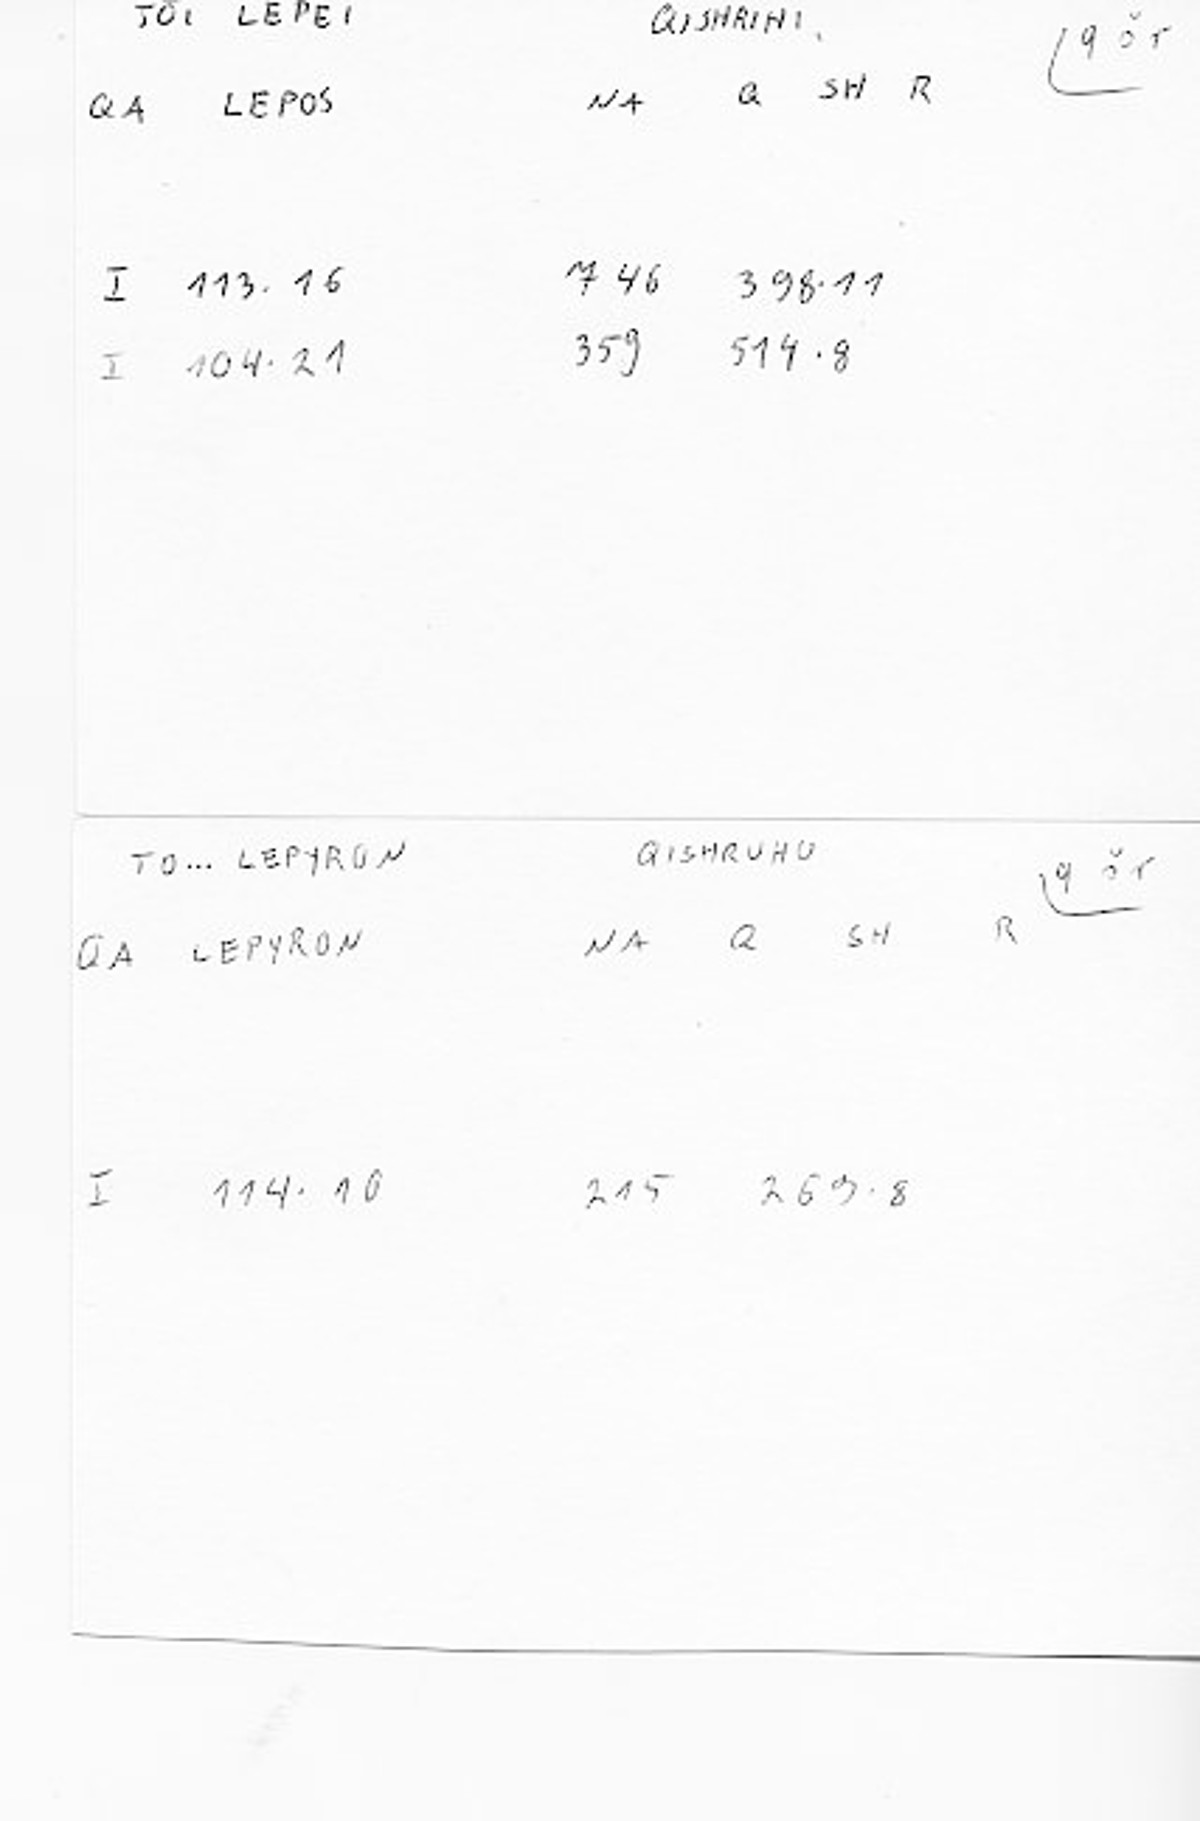 TŌI LEPEI QISHRIHI.
QA LEPOS NA Q SH R q ŏr
I 113.16 746 398.11
I 104.21 359 514.8
TO... LEPYRON QISHRUHU q ŏr
QA LEPYRON NA Q SH R
I 114.10 215 269.8